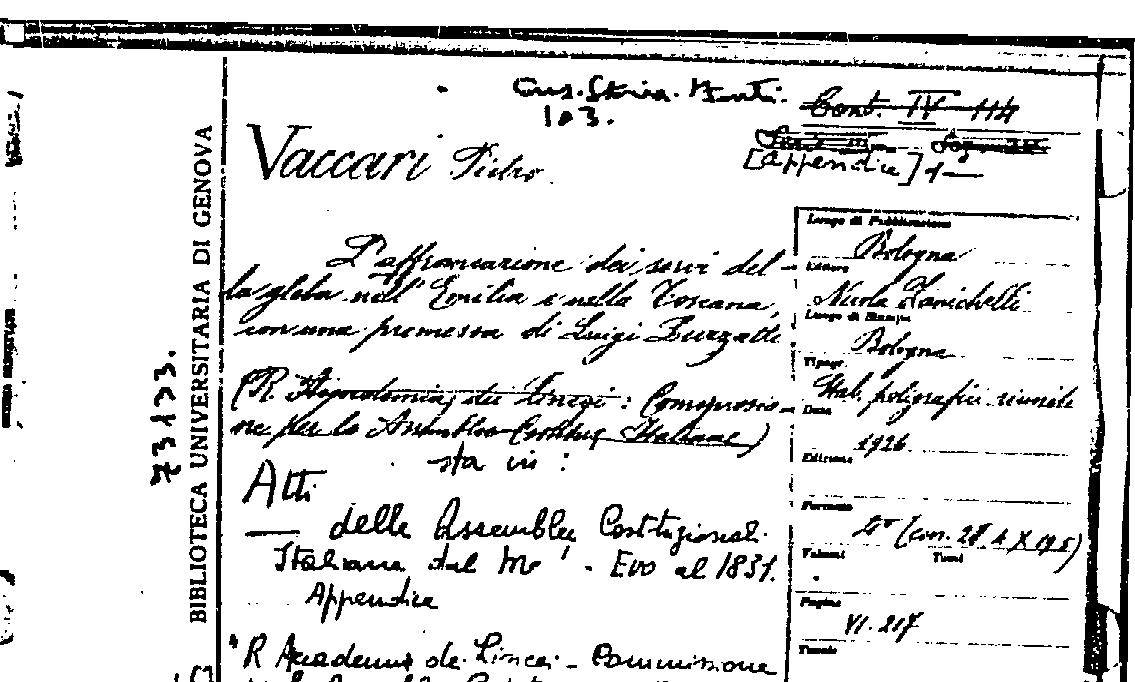 Cons. Storia.
103.
Cont. IV 114
[appendice] 1
Vaccari Pietro
L'affrancazione dei servi del-
la gleba nell'Emilia e nella Toscana,
con una premessa di Luigi Luzzatti
(R. Accademia dei Lincei: Commissio-
ne per le Assemblee Costituz. Italiane)
sta in:
Atti
— delle Assemblee Costituzionali
Italiane dal Medio Evo al 1831.
Appendice
"R Accademia dei Lincei - Commissione
BIBLIOTECA UNIVERSITARIA DI GENOVA
73133.
Luogo di Pubblicazione
Bologna
Editore
Nicola Zanichelli
Luogo di Stampa
Bologna
Tipogr.
Stab. poligrafici riuniti
Data
1926
Edizione
Formato
4° (cm. 28,4 X 19,5)
Volumi Tomi
Pagine
VI. 217
Tavole